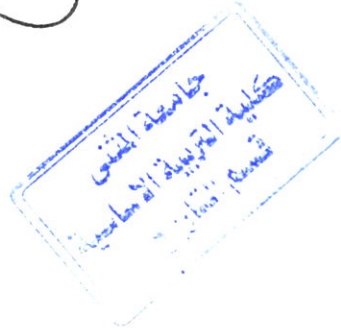 جامعة المثنى
كلية التربية الاساسية
قسم